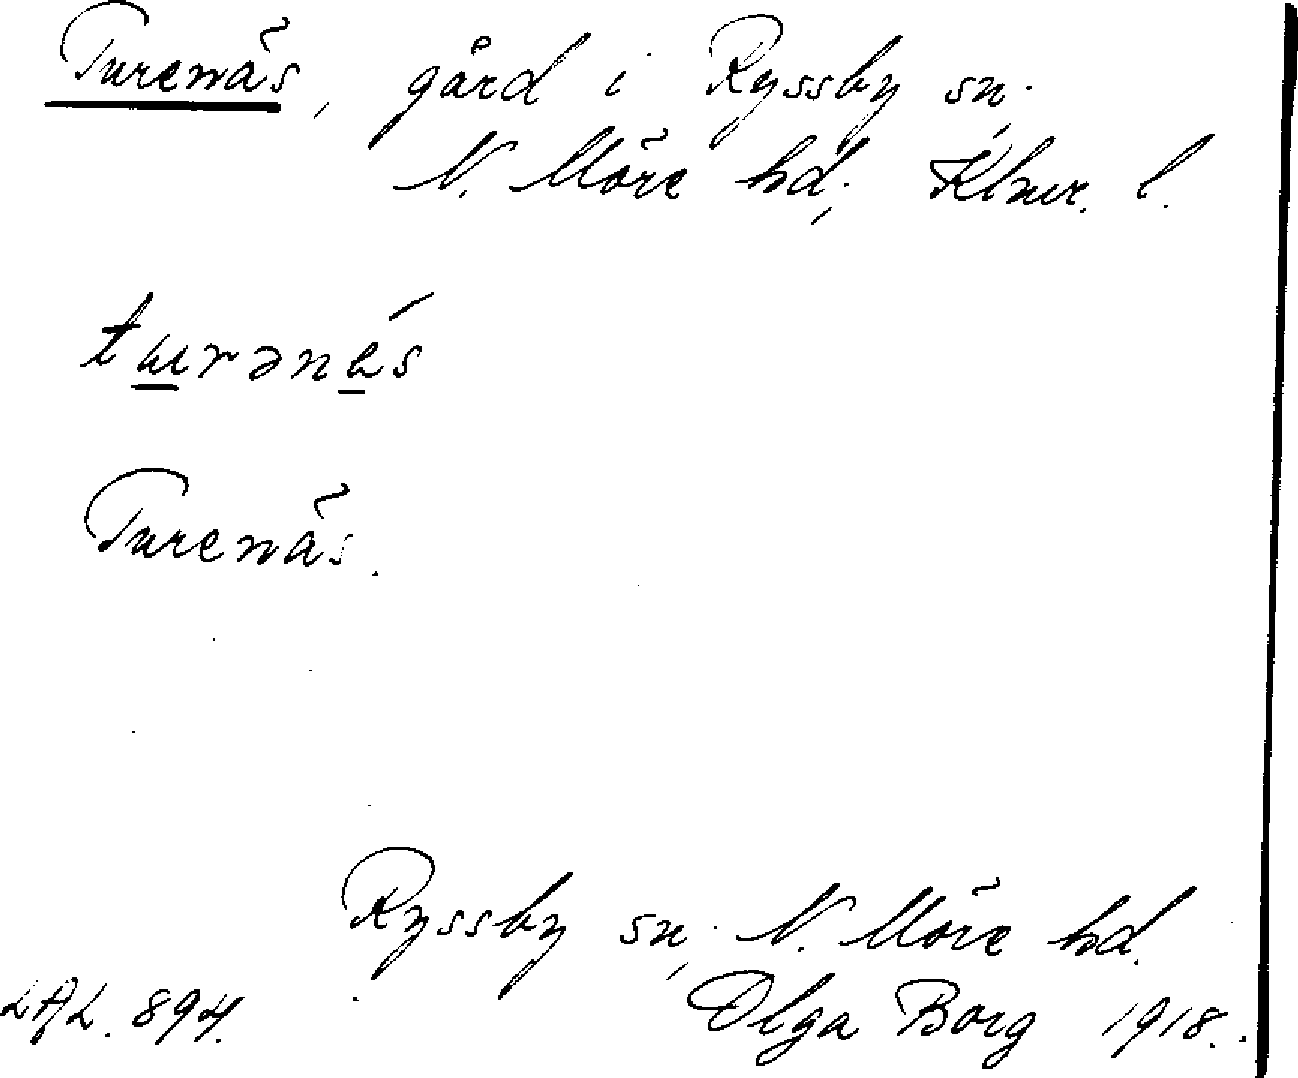 Turenäs, gård i Ryssby sn.
N. Möre hd, Klmr. l.
turənés
Turenäs.
Ryssby sn, N. Möre hd.
LAL. 894. Olga Borg 1918.